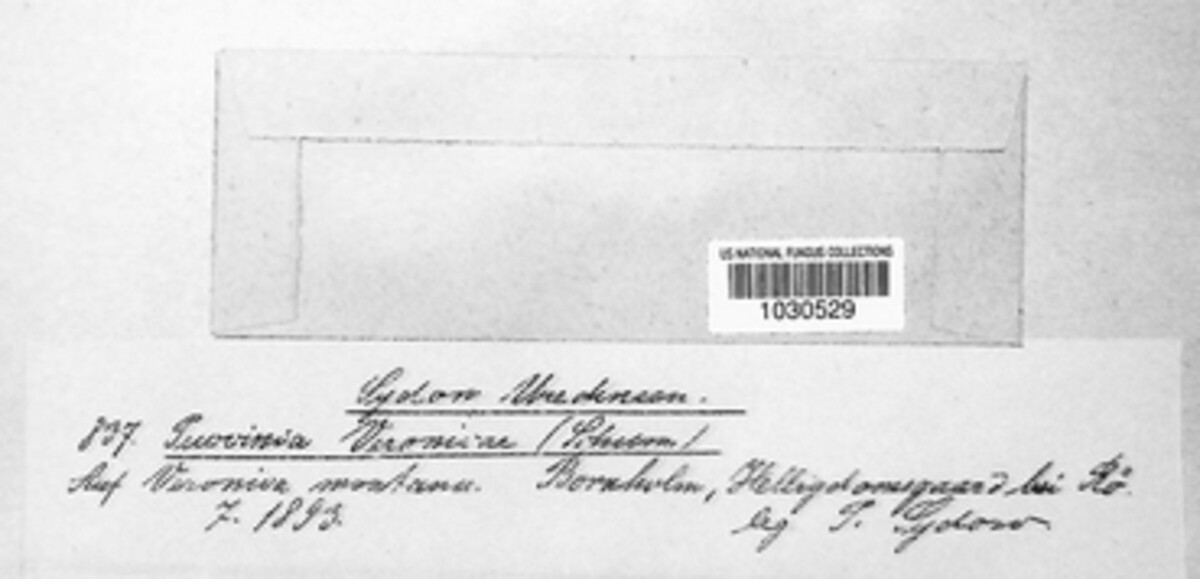 US NATIONAL FUNGUS COLLECTIONS
1030529
Sydow Uredineen.
837. Puccinia Veronicae (Schum.)
Auf Veronica montana. Bornholm, Helligdomsgaard bei Rö.
7. 1893. leg P. Sydow